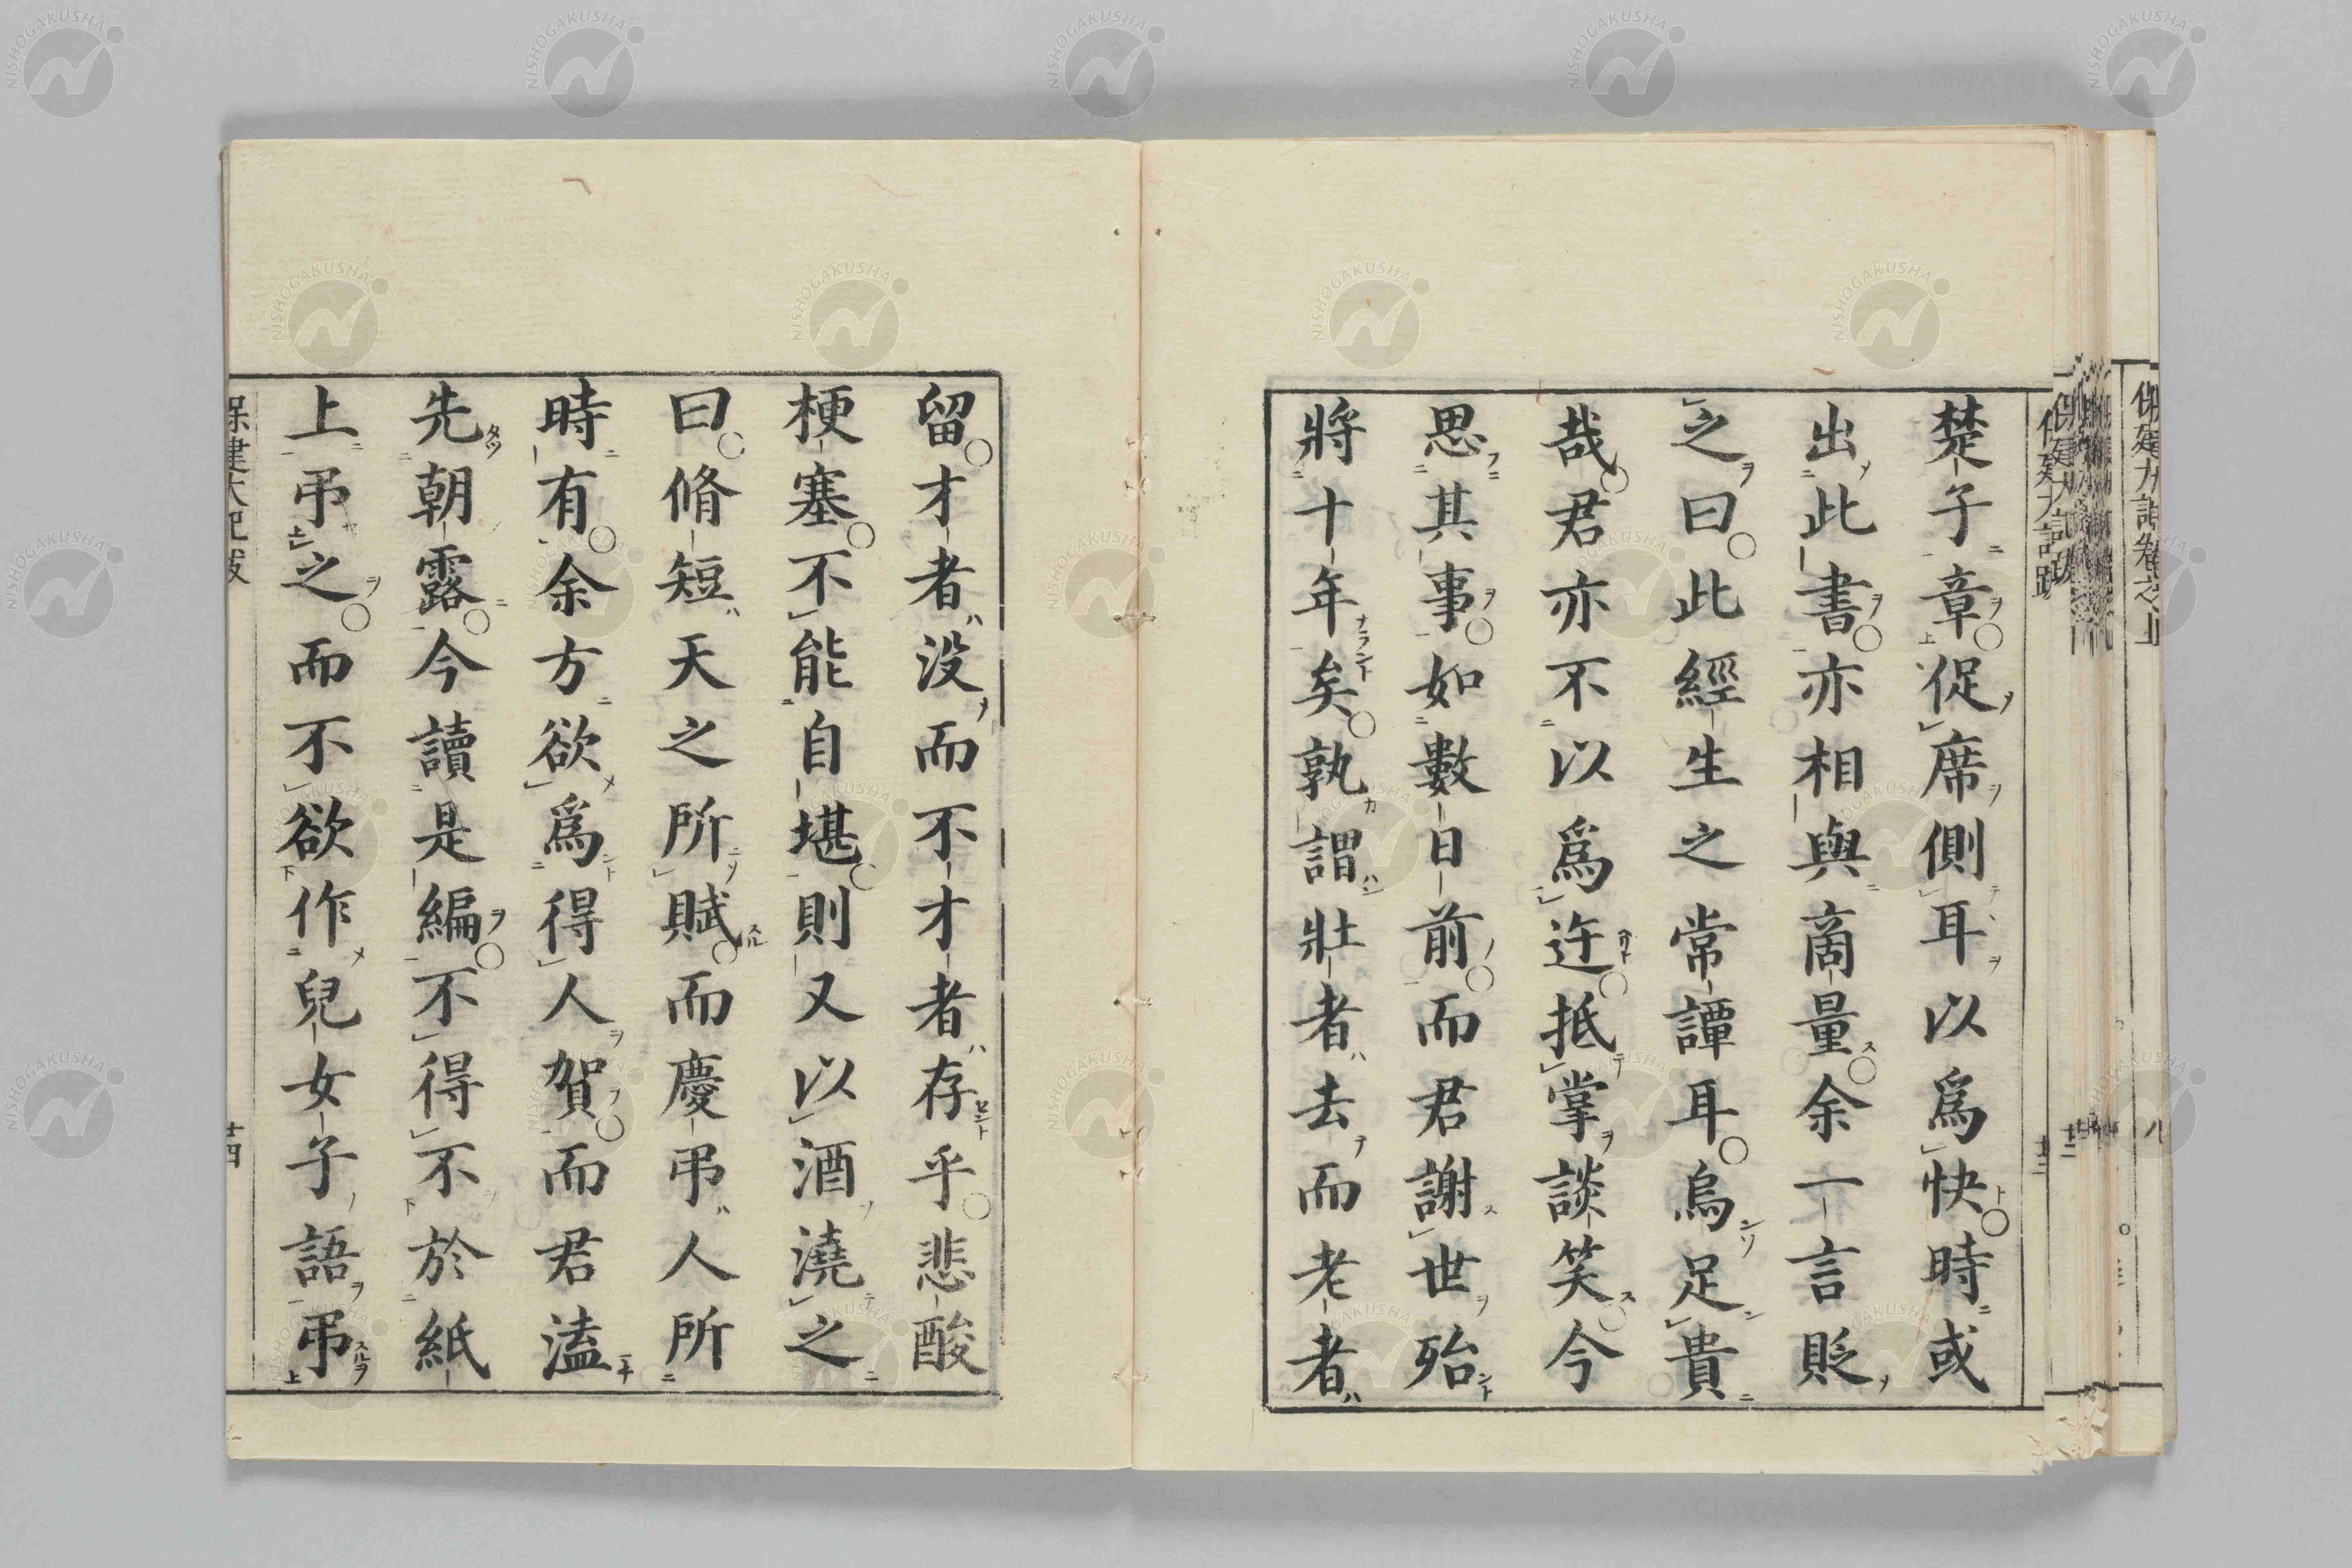 楚子章促席側耳以爲快時或
出此書亦相與商量余一言貶
之曰此經生之常譚耳烏足貴
哉君亦不以爲迕抵掌談笑今
思其事如數日前而君謝世殆
將十年矣孰謂壯者去而老者
留才者没而不才者存乎悲酸
梗塞不能自堪則又以酒澆之
曰脩短天之所賦而慶弔人所
時有余方欲爲得人賀而君溘
先朝露今讀是編不得不於紙
上弔之而不欲作兒女子語弔
保建大記跋
十四
NISHOGAKUSHA